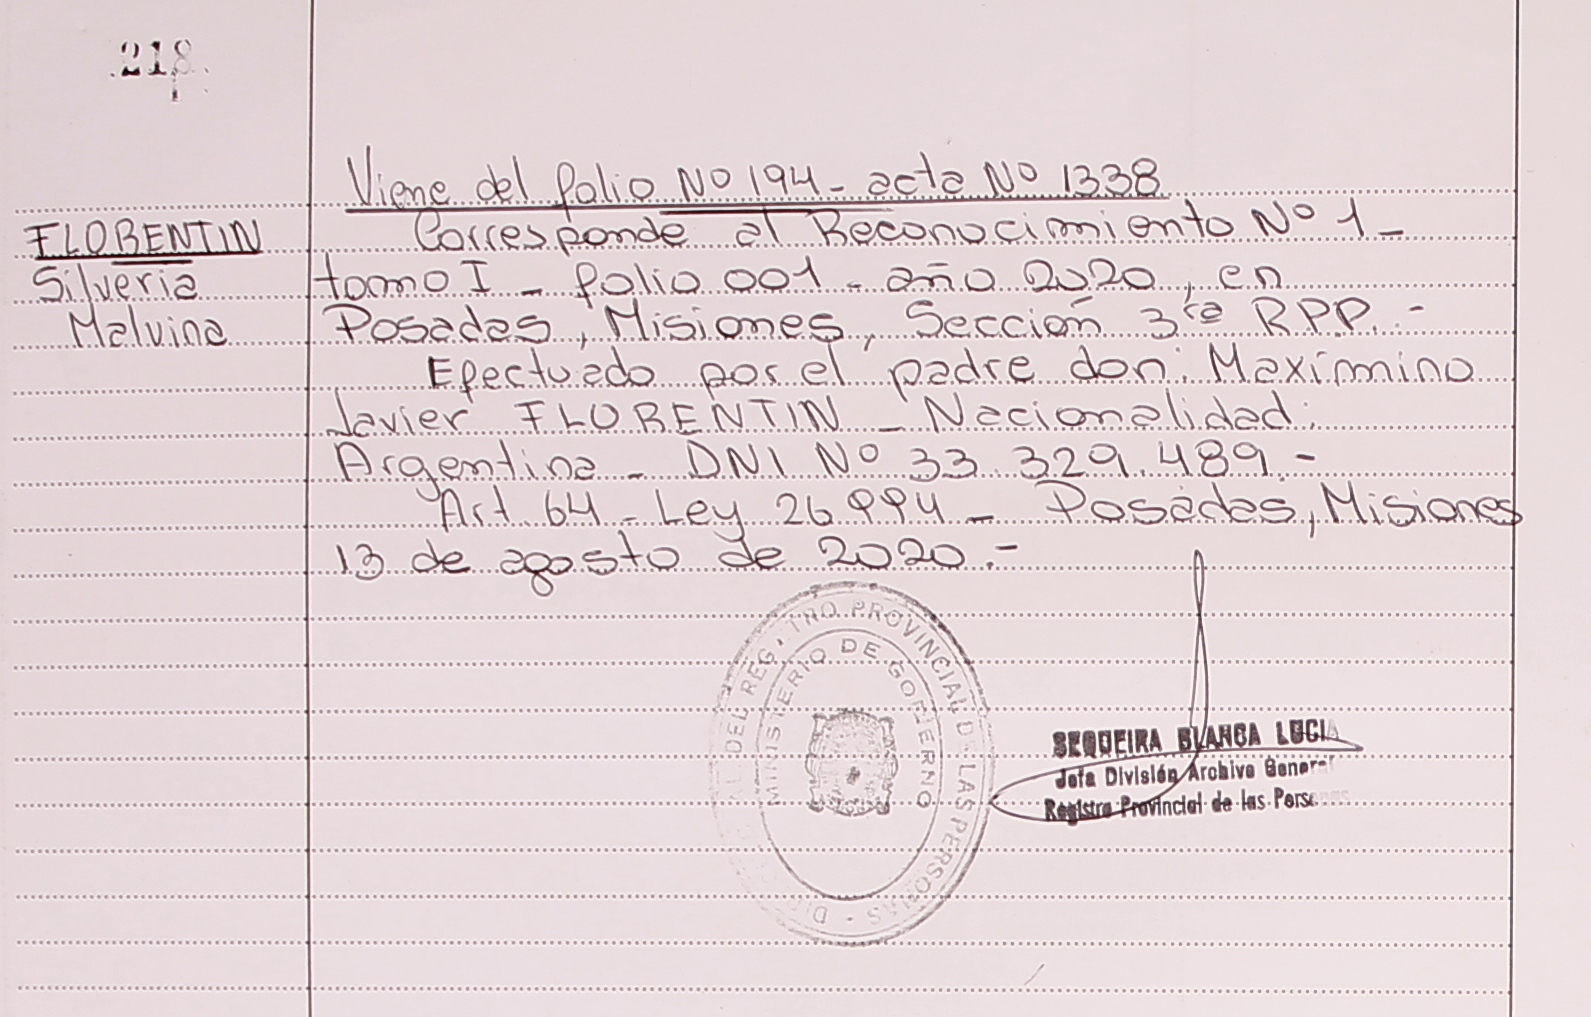 218
Viene del folio Nº 194 - acta Nº 1338
FLORENTIN
Silveria
Malvina
Corresponde al Reconocimiento Nº 1 -
tomo I - folio 001 - año 2020, en
Posadas, Misiones, Sección 3ra R.P.P. -
Efectuado por el padre don: Maxímino
Javier FLORENTIN - Nacionalidad:
Argentina - DNI Nº 33.329.489 -
Art. 64 - Ley 26994 - Posadas, Misiones
13 de agosto de 2020. -
DEL REG. TRO. PROVINCIAL DE LAS PERSONAS
MINISTERIO DE GOBIERNO
SEQUEIRA BLANCA LUCIA
Jefa División Archivo General
Registro Provincial de las Personas